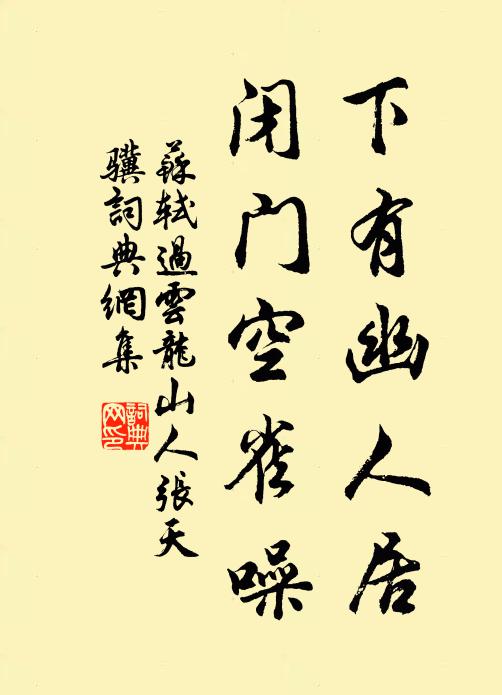 下有幽人居
闭门空雀噪
蘇轼過雲龍山人張天
骥詞典網集
詞典网印